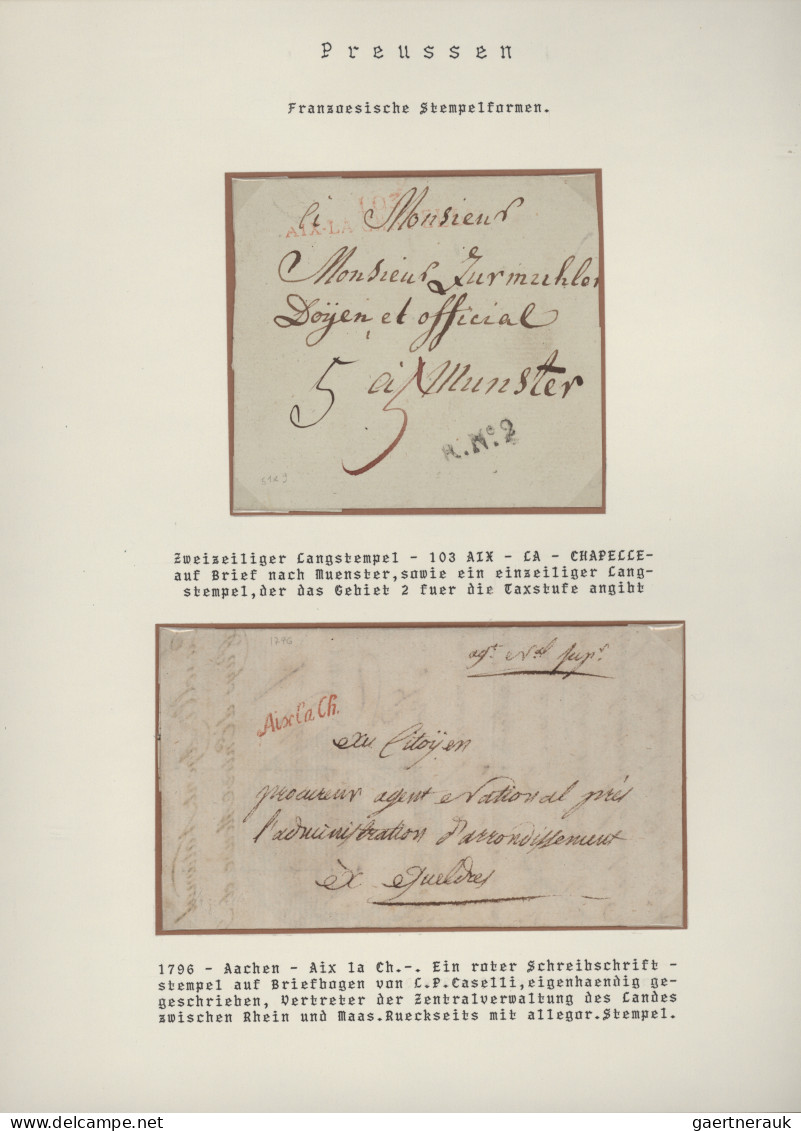 Preussen
Franzoesische Stempelformen.
103
AIX-LA
à Monsieur
Monsieur Zurmuhlen
Doÿen et official
5 à Munster
R.N.º2
Zweizeiliger Langstempel - 103 AIX - LA - CHAPELLE-
auf Brief nach Muenster,sowie ein einzeiliger Lang-
stempel,der das Gebiet 2 fuer die Taxstufe angibt
1796
Aix la Ch.
Au Citoÿen
procureur agent National près
l'administration d'arrondissement
à Gueldres
1796 - Aachen - Aix la Ch.-. Ein roter Schreibschrift -
stempel auf Briefbogen von L.P.Caselli,eigenhaendig ge-
geschrieben, Vertreter der Zentralverwaltung des Landes
zwischen Rhein und Maas.Rueckseits mit allegor.Stempel.
gaertnerauk